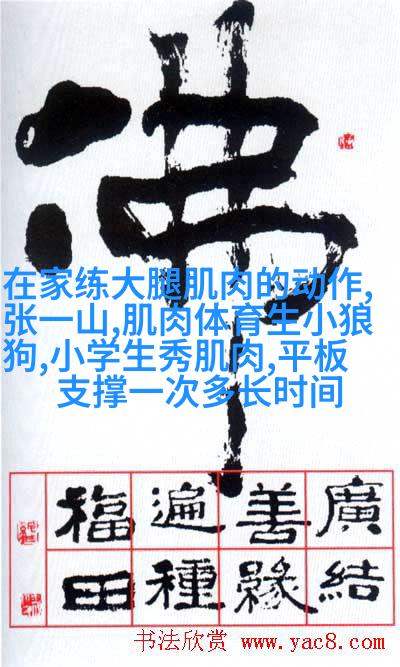 佛
在家练大腿肌肉的动作,
张一山,肌肉体育生小狼
狗,小学生秀肌肉,平板
支撑一次多长时间
廣結
善緣
遍種
福田
书法欣赏 www.yac8.com